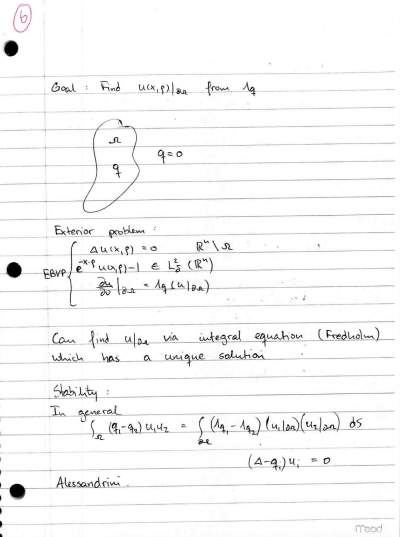 6
Goal : Find u(x,ρ)|∂Ω from Λq
Ω
q
q=0
Exterior problem :
Δu(x,ρ) = 0 ℝⁿ \ Ω
EBVP { e^{-x·ρ} u(x,ρ) - 1 ∈ L²_δ (ℝⁿ)
∂u/∂ν |∂Ω = Λq (u|∂Ω)
Can find u|∂Ω via integral equation (Fredholm)
which has a unique solution
Stability :
In general
∫_Ω (q₁-q₂) u₁u₂ = ∫_∂Ω (Λq₁ - Λq₂) (u₁|∂Ω)(u₂|∂Ω) dS
(Δ-qᵢ)uᵢ = 0
Alessandrini.